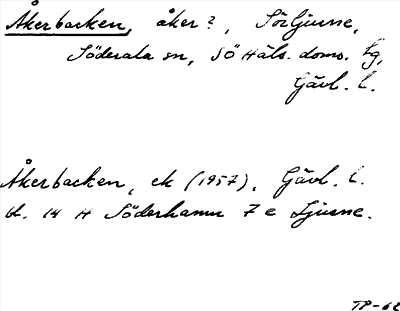 Åkerbacken, åker?, Sörljusne,
Söderala sn, SÖ Häls. doms. tg,
Gävl. l.
Åkerbacken, ek (1957), Gävl. l.
bl. 14 H Söderhamn 7 e Ljusne.
TP-62